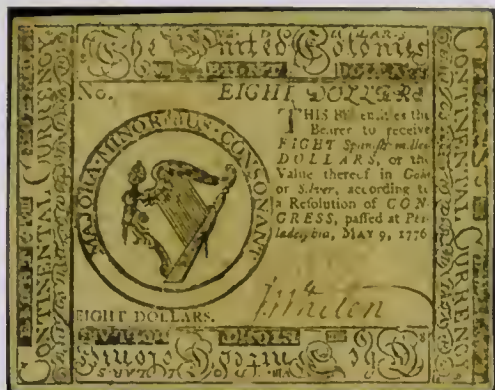 The United Colonies
EIGHT DOLLARS
CONTINENTAL CURRENCY
No. EIGHT DOLLARS
MAJORA MINORIBUS CONSONANT
THIS Bill entitles the
Bearer to receive
EIGHT Spanish milled
DOLLARS, or the
Value thereof in Gold
or Silver, according to
a Resolution of CON-
GRESS, passed at Phi-
ladelphia, MAY 9, 1776
EIGHT DOLLARS.
CONTINENTAL CURRENCY
EIGHT DOLLARS
The United Colonies